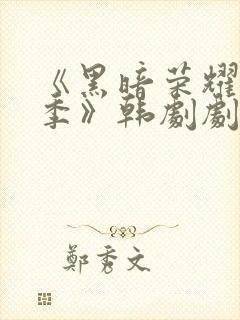 《黑暗荣耀
季》韩剧剧
鄭秀文